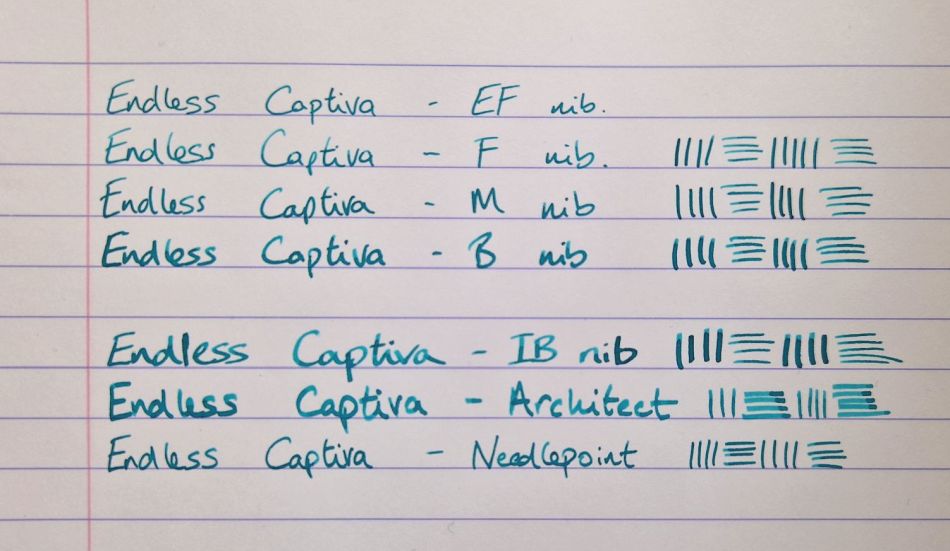 Endless Captiva - EF nib.
Endless Captiva - F nib.
Endless Captiva - M nib
Endless Captiva - B nib
Endless Captiva - IB nib
Endless Captiva - Architect
Endless Captiva - Needlepoint